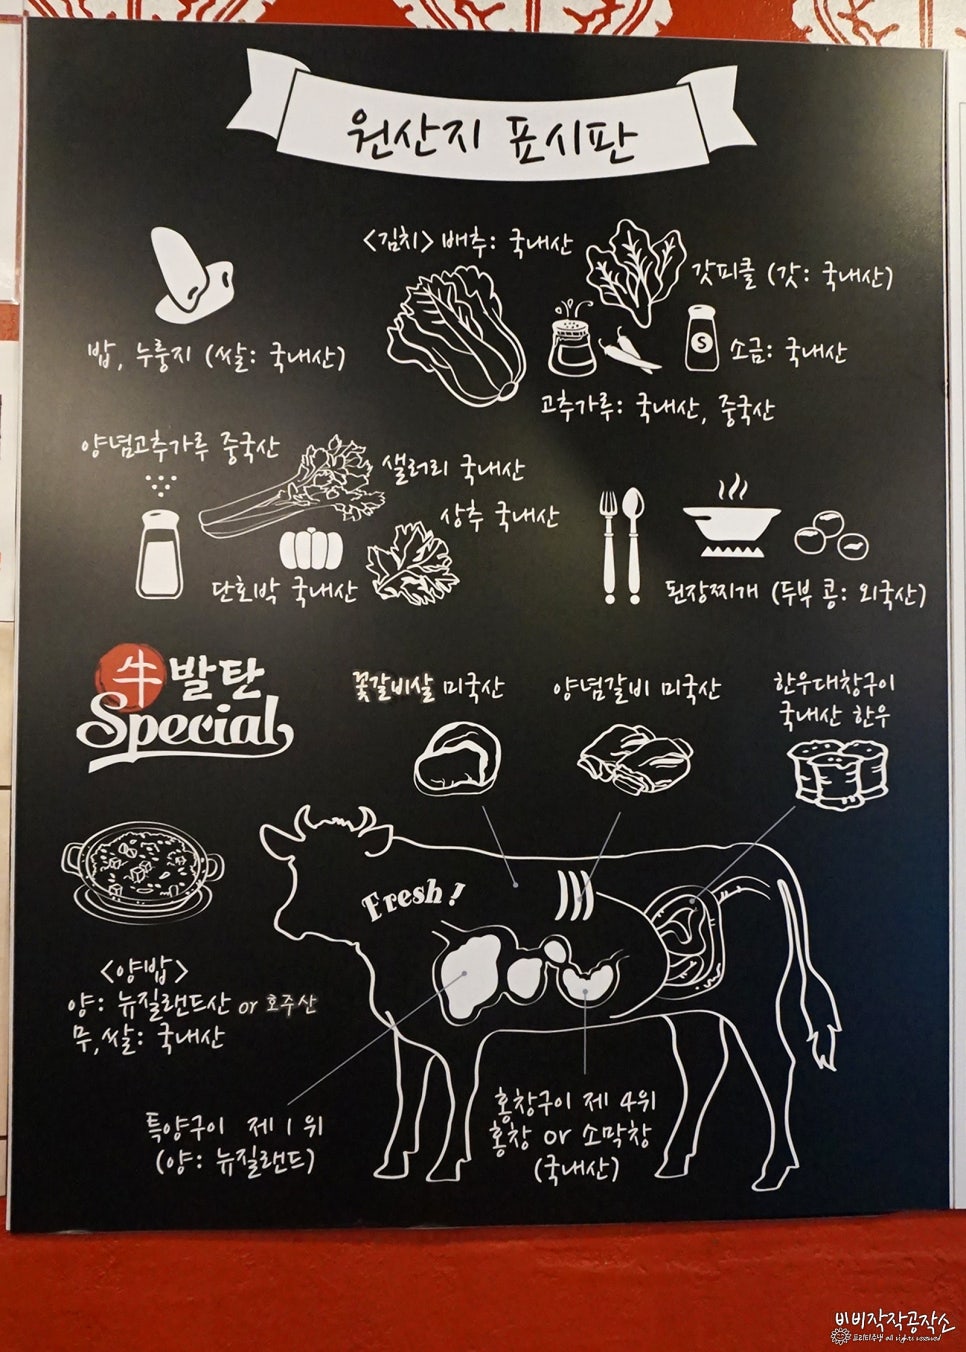 원산지 표시판
<김치> 배추: 국내산
갓피클 (갓: 국내산)
밥, 누룽지 (쌀: 국내산)
S
소금: 국내산
고추가루: 국내산, 중국산
양념고추가루 중국산
샐러리 국내산
상추 국내산
단호박 국내산
된장찌개 (두부 콩: 외국산)
牛발탄
Special
꽃갈비살 미국산
양념갈비 미국산
한우대창구이
국내산 한우
Fresh!
<양밥>
양: 뉴질랜드산 or 호주산
무,쌀: 국내산
특양구이 제 1 위
(양: 뉴질랜드)
홍창구이 제 4위
홍창 or 소막창
(국내산)
비비작작공작소
all rights reserved